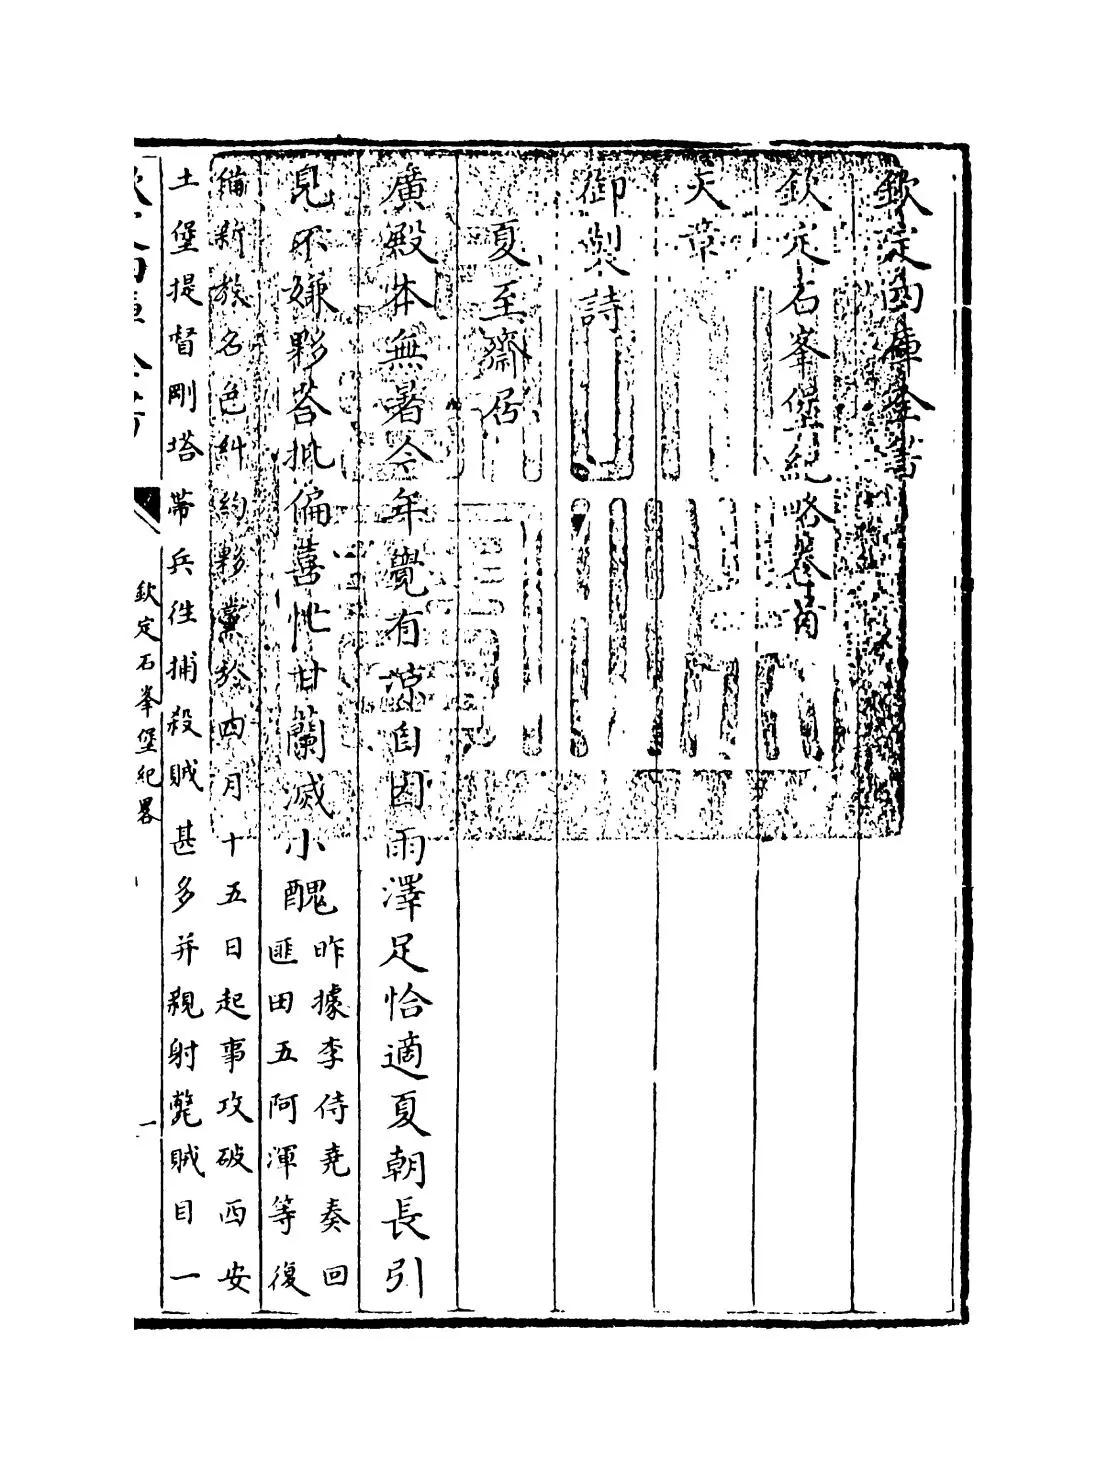 欽定四庫全書
欽定石峯堡紀略卷首
天章
御製詩
夏至齋居
廣殿本無暑今年覺有涼自因雨澤足恰適夏朝長引
見不嫌夥荅批偏喜忙甘蘭滅小醜
昨據李侍堯奏回
匪田五阿渾等復
新教名色糾約夥黨於四月十五日起事攻破西安
土堡提督剛塔帶兵徃捕殺賊甚多并親射斃賊目一
欽定石峯堡紀畧
一